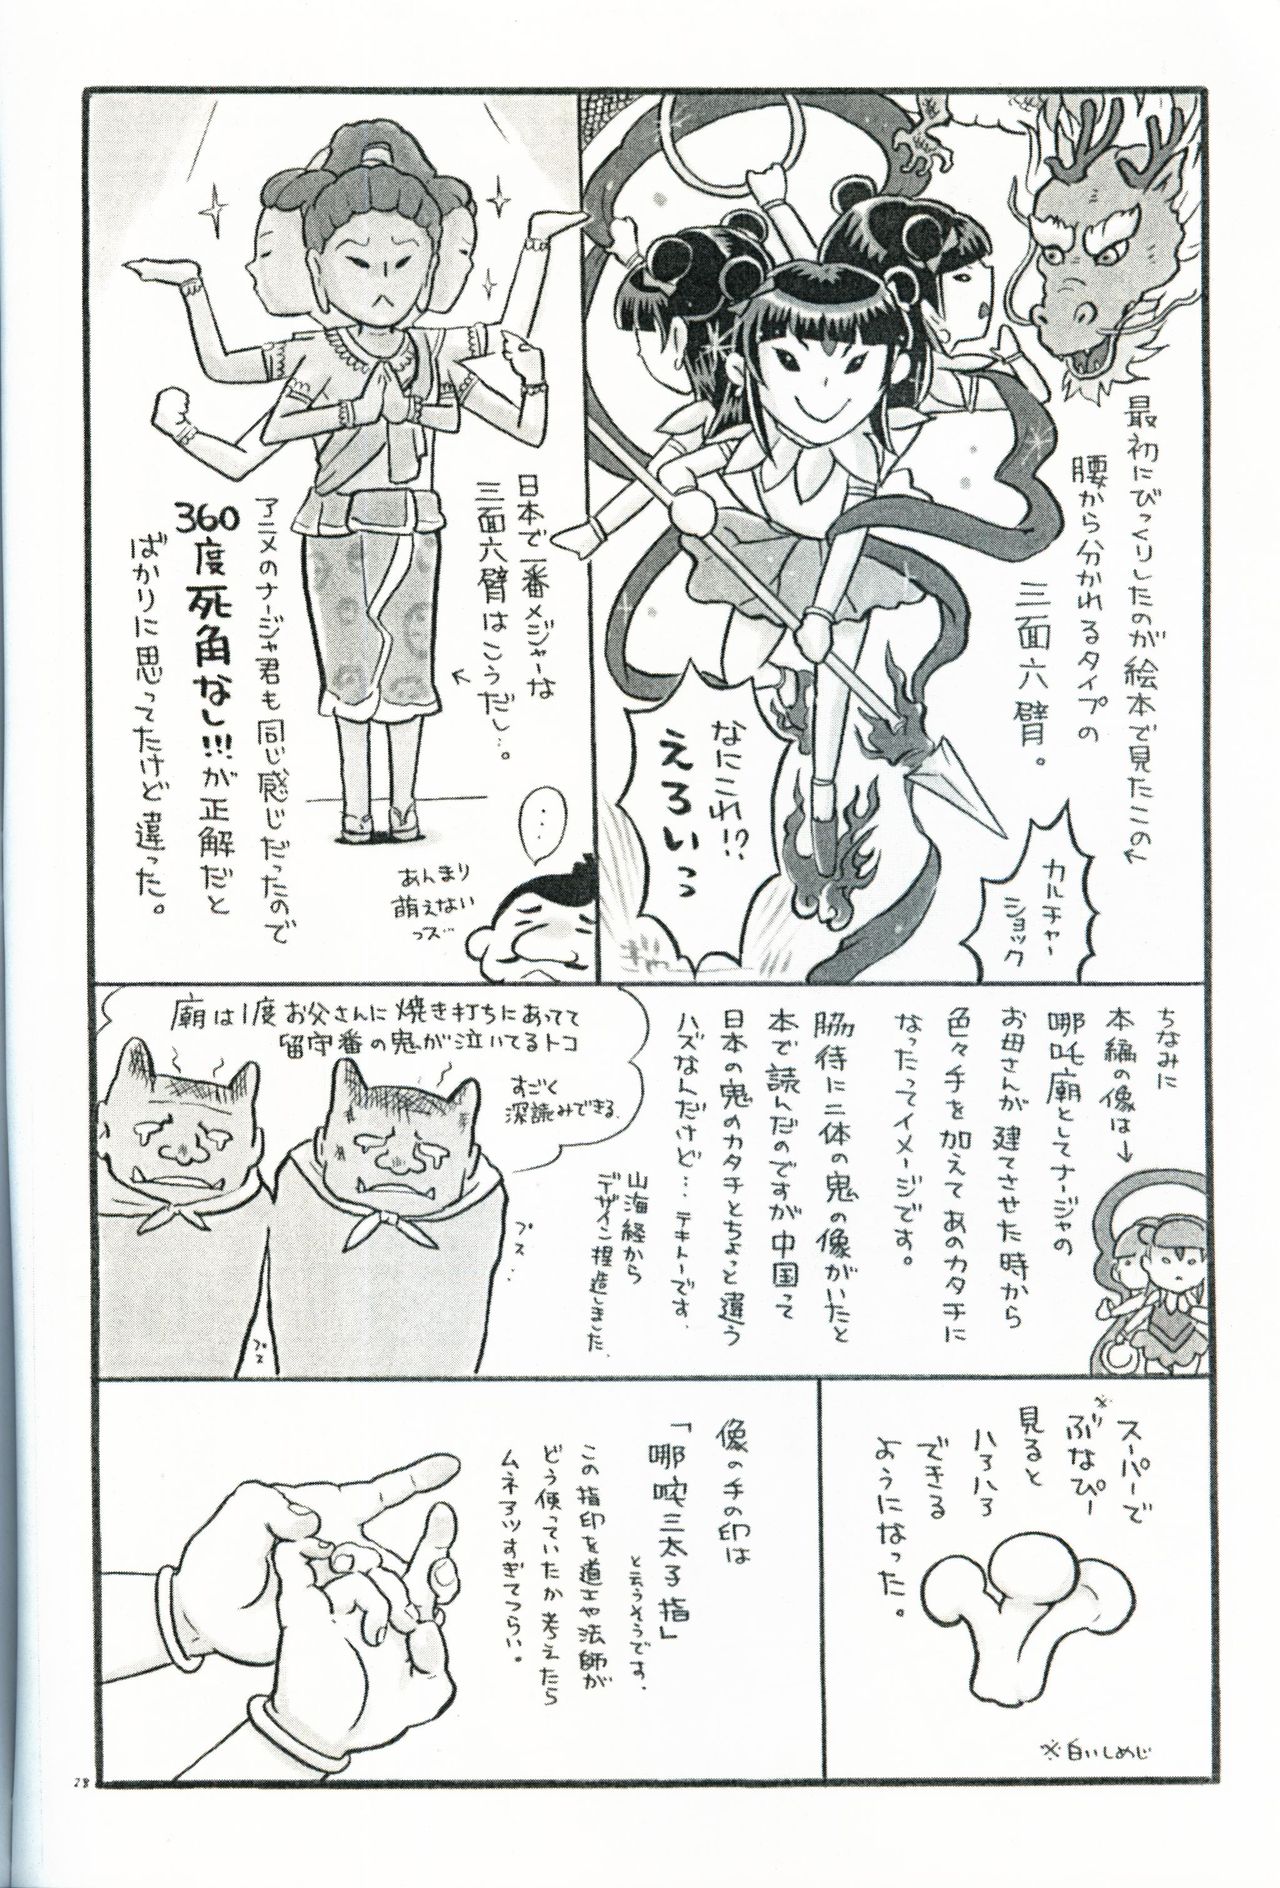 最初にびっくりしたのが絵本で見たこの←
腰から分かれるタイプの
三面六臂。
カルチャー
ショック
なにこれ!?
えろいっ
ぎゃ
日本で一番メジャーな
三面六臂はこうだし…。
←
アニメのナージャ君も同じ感じだったので
360
度死角なし!!!が正解だと
ばかりに思ってたけど違った。
…
あんまり
萌えない
っス…
ちなみに
本編の像は→
哪吒廟としてナージャの
お母さんが建てさせた時から
色々手を加えてあのカタチに
なったってイメージです。
脇待に二体の鬼の像がいたと
本で読んだのですが中国って
日本の鬼のカタチとちょっと違う
ハズなんだけど…テキトーです。
山海経から
デザイン捏造しました。
廟は1度お父さんに焼き打ちにあってて
留守番の鬼が泣いてるトコ
すごく
深読みできる。
プス…
プス
スーパーで
※ぶなぴー
見ると
ハアハア
できる
ようになった。
※白いしめじ
像の手の印は
「哪吒三太子指」
と云うそうです。
この指印を道士や法師が
どう使っていたか考えたら
ムネアツすぎてつらい。
28